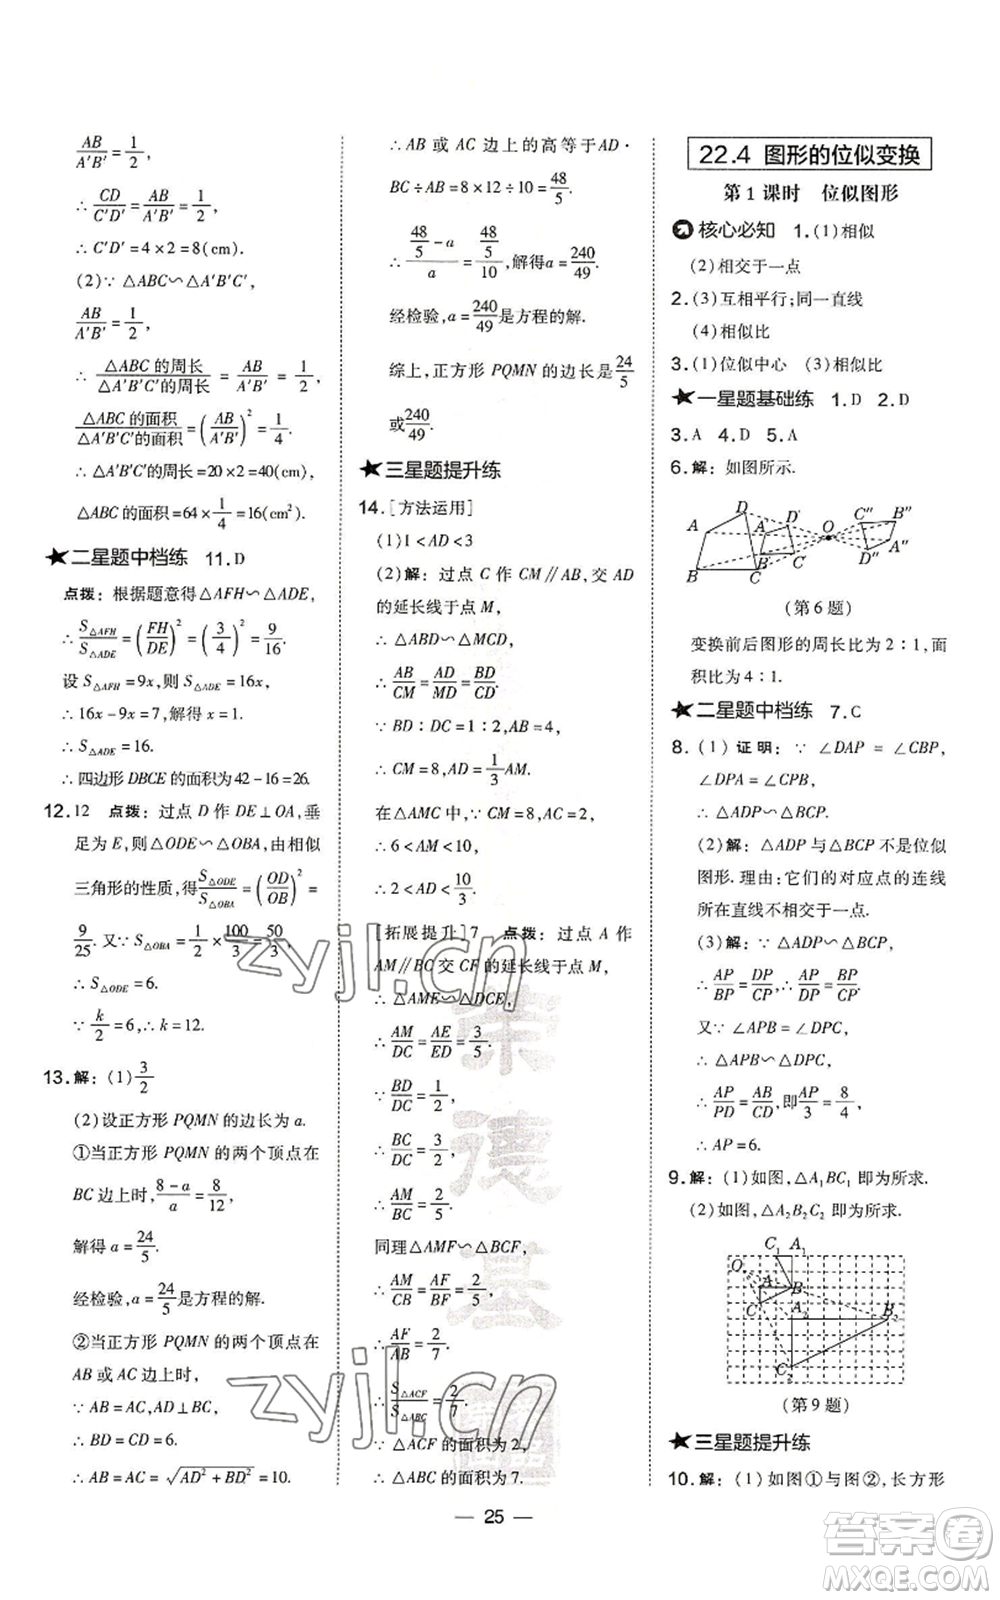 AB/A′B′=1/2,
∴ CD/C′D′=AB/A′B′=1/2.
∴ C′D′=4×2=8(cm).
(2)∵ △ABC∽△A′B′C′,
AB/A′B′=1/2,
∴ △ABC 的周长/△A′B′C′的周长=AB/A′B′=1/2,
△ABC 的面积/△A′B′C′的面积=(AB/A′B′)²=1/4.
∴ △A′B′C′的周长=20×2=40(cm),
△ABC 的面积=64×1/4=16(cm²).
★二星题中档练 11.D
点拨：根据题意得△AFH∽△ADE,
∴ S△AFH/S△ADE=(FH/DE)²=(3/4)²=9/16.
设 S△AFH=9x,则 S△ADE=16x,
∴ 16x-9x=7,解得 x=1.
∴ S△ADE=16.
∴ 四边形 DBCE 的面积为42-16=26.
12.12 点拨：过点 D 作 DE⊥OA,垂
足为 E,则△ODE∽△OBA,由相似
三角形的性质,得S△ODE/S△OBA=(OD/OB)²=
9/25.又∵ S△OBA=1/2×100/3=50/3,
∴ S△ODE=6.
∵ k/2=6,∴ k=12.
13.解：(1)3/2
(2)设正方形 PQMN 的边长为 a.
①当正方形 PQMN 的两个顶点在
BC 边上时,8-a/a=8/12,
解得 a=24/5.
经检验,a=24/5是方程的解.
②当正方形 PQMN 的两个顶点在
AB 或 AC 边上时,
∵ AB=AC,AD⊥BC,
∴ BD=CD=6.
∴ AB=AC=√AD²+BD²=10.
∴ AB 或 AC 边上的高等于AD·
BC÷AB=8×12÷10=48/5.
∴ 48/5-a/a=48/5/10,解得a=240/49.
经检验,a=240/49是方程的解.
综上,正方形 PQMN 的边长是24/5
或240/49.
★三星题提升练
14.[方法运用]
(1)1<AD<3
(2)解：过点 C 作 CM∥AB,交 AD
的延长线于点 M,
∴ △ABD∽△MCD,
∴ AB/CM=AD/MD=BD/CD.
∵ BD∶DC=1∶2,AB=4,
∴ CM=8,AD=1/3AM.
在△AMC 中,∵ CM=8,AC=2,
∴ 6<AM<10,
∴ 2<AD<10/3.
[拓展提升]7 点拨：过点 A 作
AM∥BC 交 CF 的延长线于点 M,
∴ △AME∽△DCE,
∴ AM/DC=AE/ED=3/5.
∵ BD/DC=1/2,
∴ BC/DC=3/2,
∴ AM/BC=2/5.
同理△AMF∽△BCF,
∴ AM/CB=AF/BF=2/5,
∴ AF/AB=2/7.
∴ S△ACF/S△ABC=2/7.
∵ △ACF 的面积为 2,
∴ △ABC 的面积为 7.
22.4 图形的位似变换
第 1 课时 位似图形
核心必知 1.(1)相似
(2)相交于一点
2.(3)互相平行;同一直线
(4)相似比
3.(1)位似中心 (3)相似比
★一星题基础练 1.D 2.D
3.A 4.D 5.A
6.解：如图所示.
A D A′ D′ O C″ B″
B C B′ C′ D″ A″
(第 6 题)
变换前后图形的周长比为 2∶1,面
积比为 4∶1.
★二星题中档练 7.C
8.(1)证明：∵ ∠DAP=∠CBP,
∠DPA=∠CPB,
∴ △ADP∽△BCP.
(2)解：△ADP 与△BCP 不是位似
图形.理由：它们的对应点的连线
所在直线不相交于一点.
(3)解：∵ △ADP∽△BCP,
∴ AP/BP=DP/CP,∴ AP/DP=BP/CP.
又∵ ∠APB=∠DPC,
∴ △APB∽△DPC,
∴ AP/PD=AB/CD,即AP/3=8/4,
∴ AP=6.
9.解：(1)如图,△A₁BC₁ 即为所求.
(2)如图,△A₂B₂C₂ 即为所求.
C₁ A₁
O A B
C A₂ B₂
C₂
(第 9 题)
★三星题提升练
10.解：(1)如图①与图②,长方形
— 25 —
zyjl.cn
zyjl.cn
荣德基
答案卷
MXQE.COM